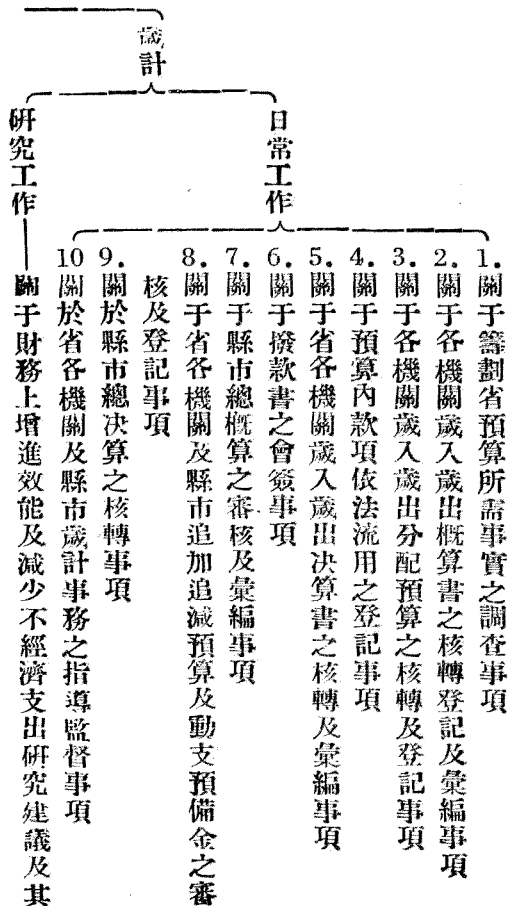 歲計
日常工作
1. 關于籌劃省預算所需事實之調查事項
2. 關于各機關歲入歲出概算書之核轉登記及彙編事項
3. 關于各機關歲入歲出分配預算之核轉及登記事項
4. 關于預算內款項依法流用之登記事項
5. 關于省各機關歲入歲出决算書之核轉及彙編事項
6. 關于撥款書之會簽事項
7. 關于縣市總概算之審核及彙編事項
8. 關于省各機關及縣市追加追減預算及動支預備金之審
核及登記事項
9. 關於縣市總决算之核轉事項
10 關於省各機關及縣市歲計事務之指導監督事項
研究工作
關于財務上增進效能及減少不經濟支出研究建議及其